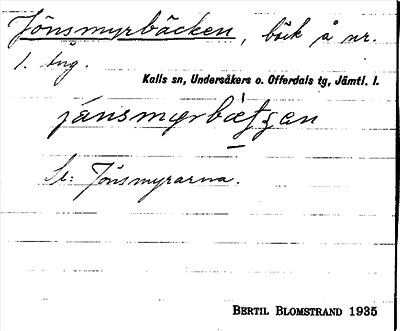 Jönsmyrbäcken, bäck å nr.
1. äng.
Kalls sn, Undersåkers o. Offerdals tg, Jämtl. l.
jánsmyrbæ̀ʈʂen
Se: Jönsmyrarna.
BERTIL BLOMSTRAND 1935